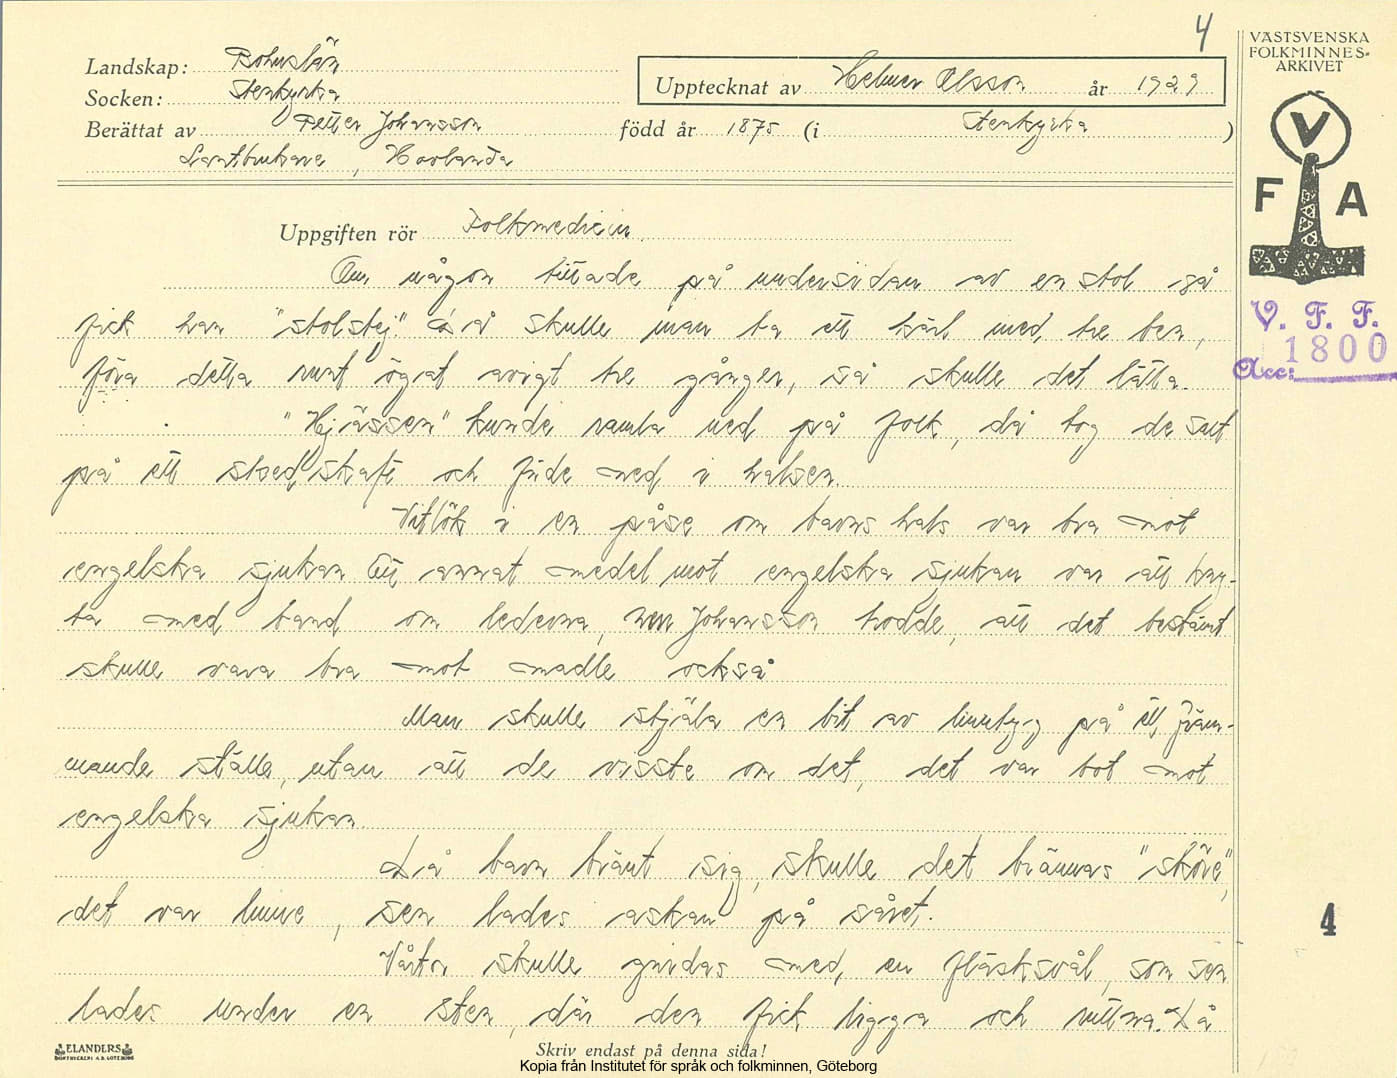 4
VÄSTSVENSKA
FOLKMINNES-
ARKIVET
Landskap: Bohuslän
Socken: Stenkyrka
Upptecknat av Helmer Olsson år 1929
Berättat av Petter Johansson född år 1875 (i Stenkyrka)
Lantbrukare, Hovlanda
V
F A
Uppgiften rör Folkmedicin.
Om någon tittade på undersidan av en stol så
fick han "stolstej" Då skulle man ta ett kärl med tre ben,
föra detta runt ögat avigt tre gånger, så skulle det lätta.
V. F. F.
Acc: 1800
"Hjässen" kunde ramla ned på folk, då tog de salt
på ett skedskaft och förde ned i halsen.
Vitlök i en påse om barns hals var bra mot
engelska sjukan Ett annat medel mot engelska sjukan var att kny-
ta med band om lederna, men Johansson trodde, att det bestämt
skulle vara bra mot madle också
Man skulle stjäla en bit av linntyg på ett främ-
mande ställe, utan att de visste om det, det var bot mot
engelska sjukan.
Då barn bränt sig, skulle det brännas "sköre",
det var linne, sen lades askan på såret.
4
Vårtor skulle gnidas med en fläsksvål, som sen
lades under en sten, där den fick ligga och ruttna. Då
ELANDERS
BOKTRYCKERI A.B. GÖTEBORG
Skriv endast på denna sida!
Kopia från Institutet för språk och folkminnen, Göteborg